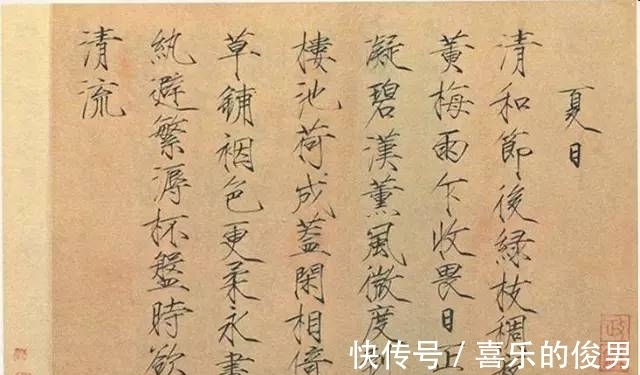 夏日
清和節後綠枝稠
黃梅雨乍收畏日正
凝碧漢薰風微度
樓池荷成蓋閑相倚
草鋪裀色更柔永晝
紈避繁溽杯盤時欲
清流
快传号 / 喜乐的俊男